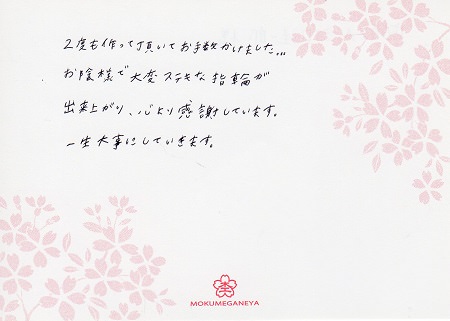 2度も作って頂いてお手数かけました...
お陰様で大変ステキな指輪が
出来上がり、心より感謝しています。
一生大事にしていきます。
MOKUMEGANEYA